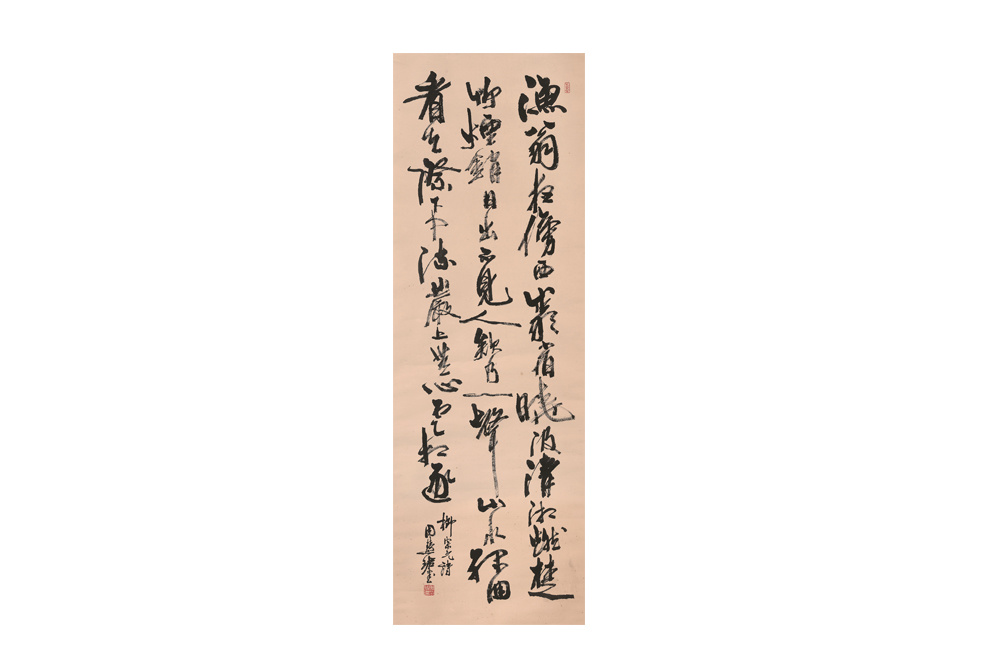 漁翁夜傍西巖宿曉汲清湘燃楚
竹煙銷日出不見人欸乃一聲山水綠回
看天際下中流巖上無心雲相逐
柳宗元詩
周慧珺書